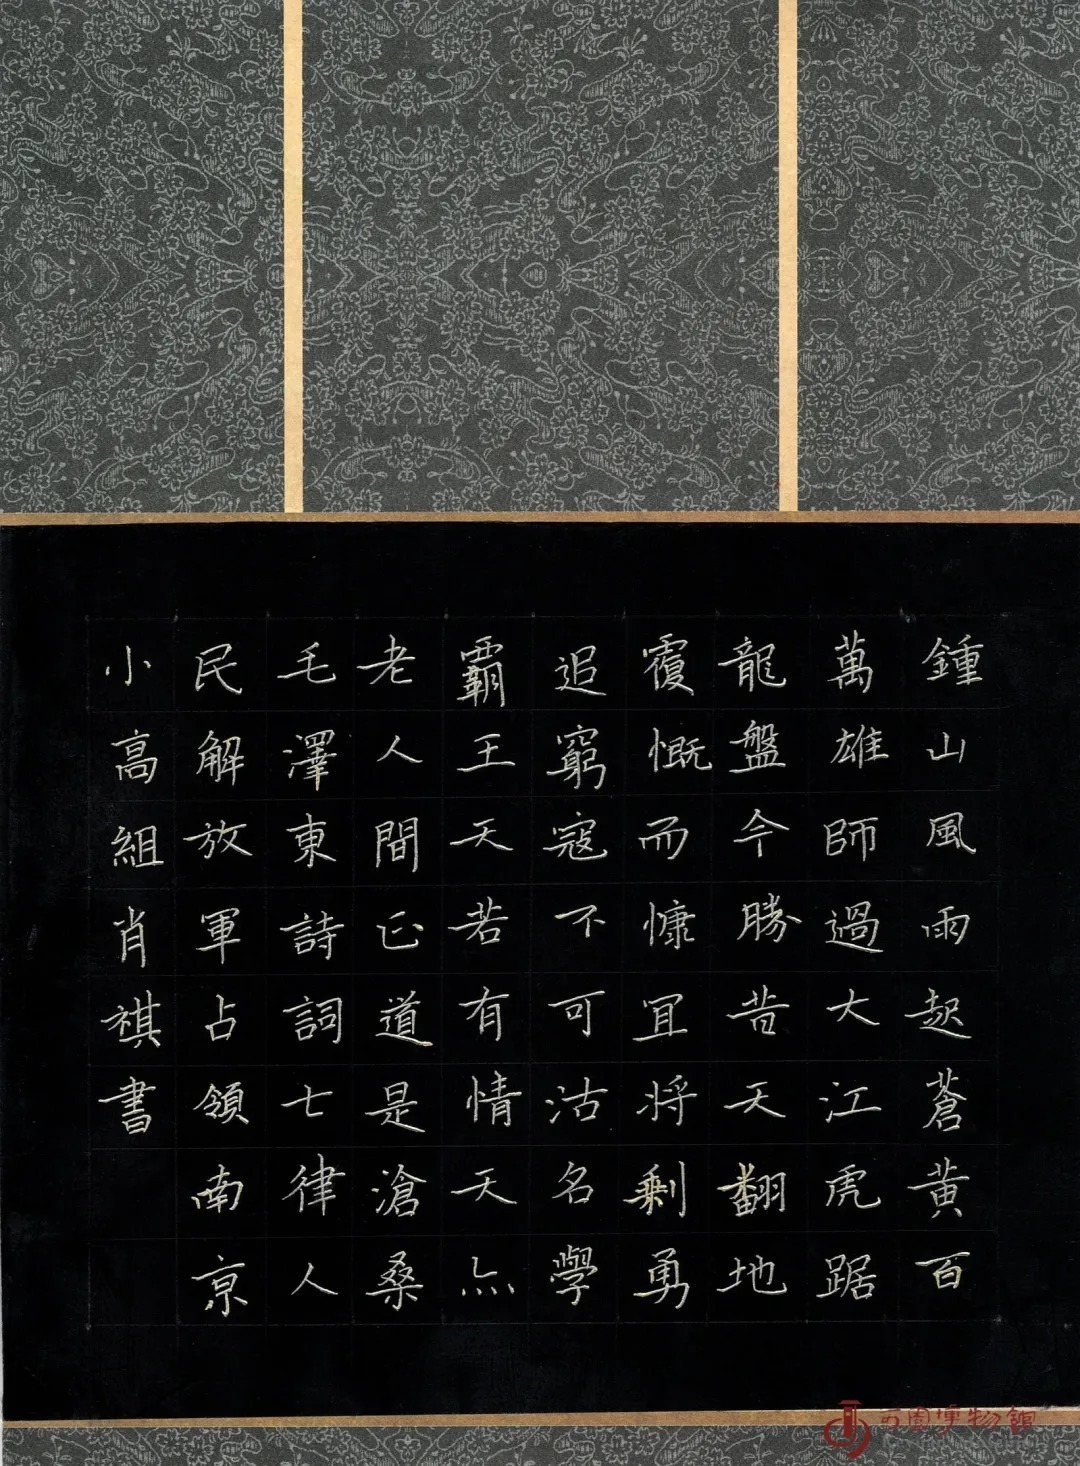 鍾山風雨起蒼黃百
萬雄師過大江虎踞
龍盤今勝昔天翻地
覆慨而慷宜將剩勇
追窮寇不可沽名學
霸王天若有情天亦
老人間正道是滄桑
毛澤東詩詞七律人
民解放軍占領南京
小高組肖祺書
博物館